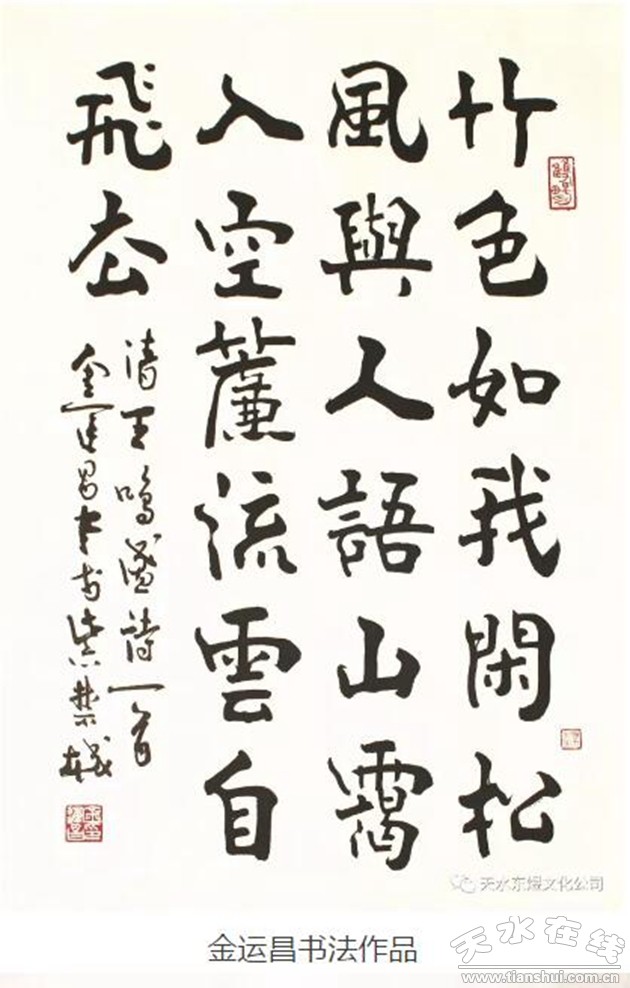 竹色如我閑松
風與人語山靄
入空簾流雲自
飛去
清王鳴盛詩一首
金運昌書於紫禁城
天水东煜文化公司
金运昌书法作品
天水在线
www.tianshui.com.cn